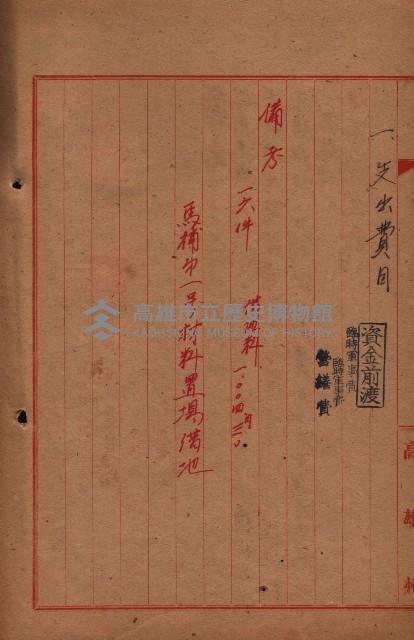 一支出費目
資金前渡
臨時軍事費
臨時軍事費
營繕費
備考
一六件
一〇〇四円三〇
馬補布一号材料置場借地
高雄州
高雄市立歷史博物館
KAOHSIUNG MUSEUM OF HISTORY